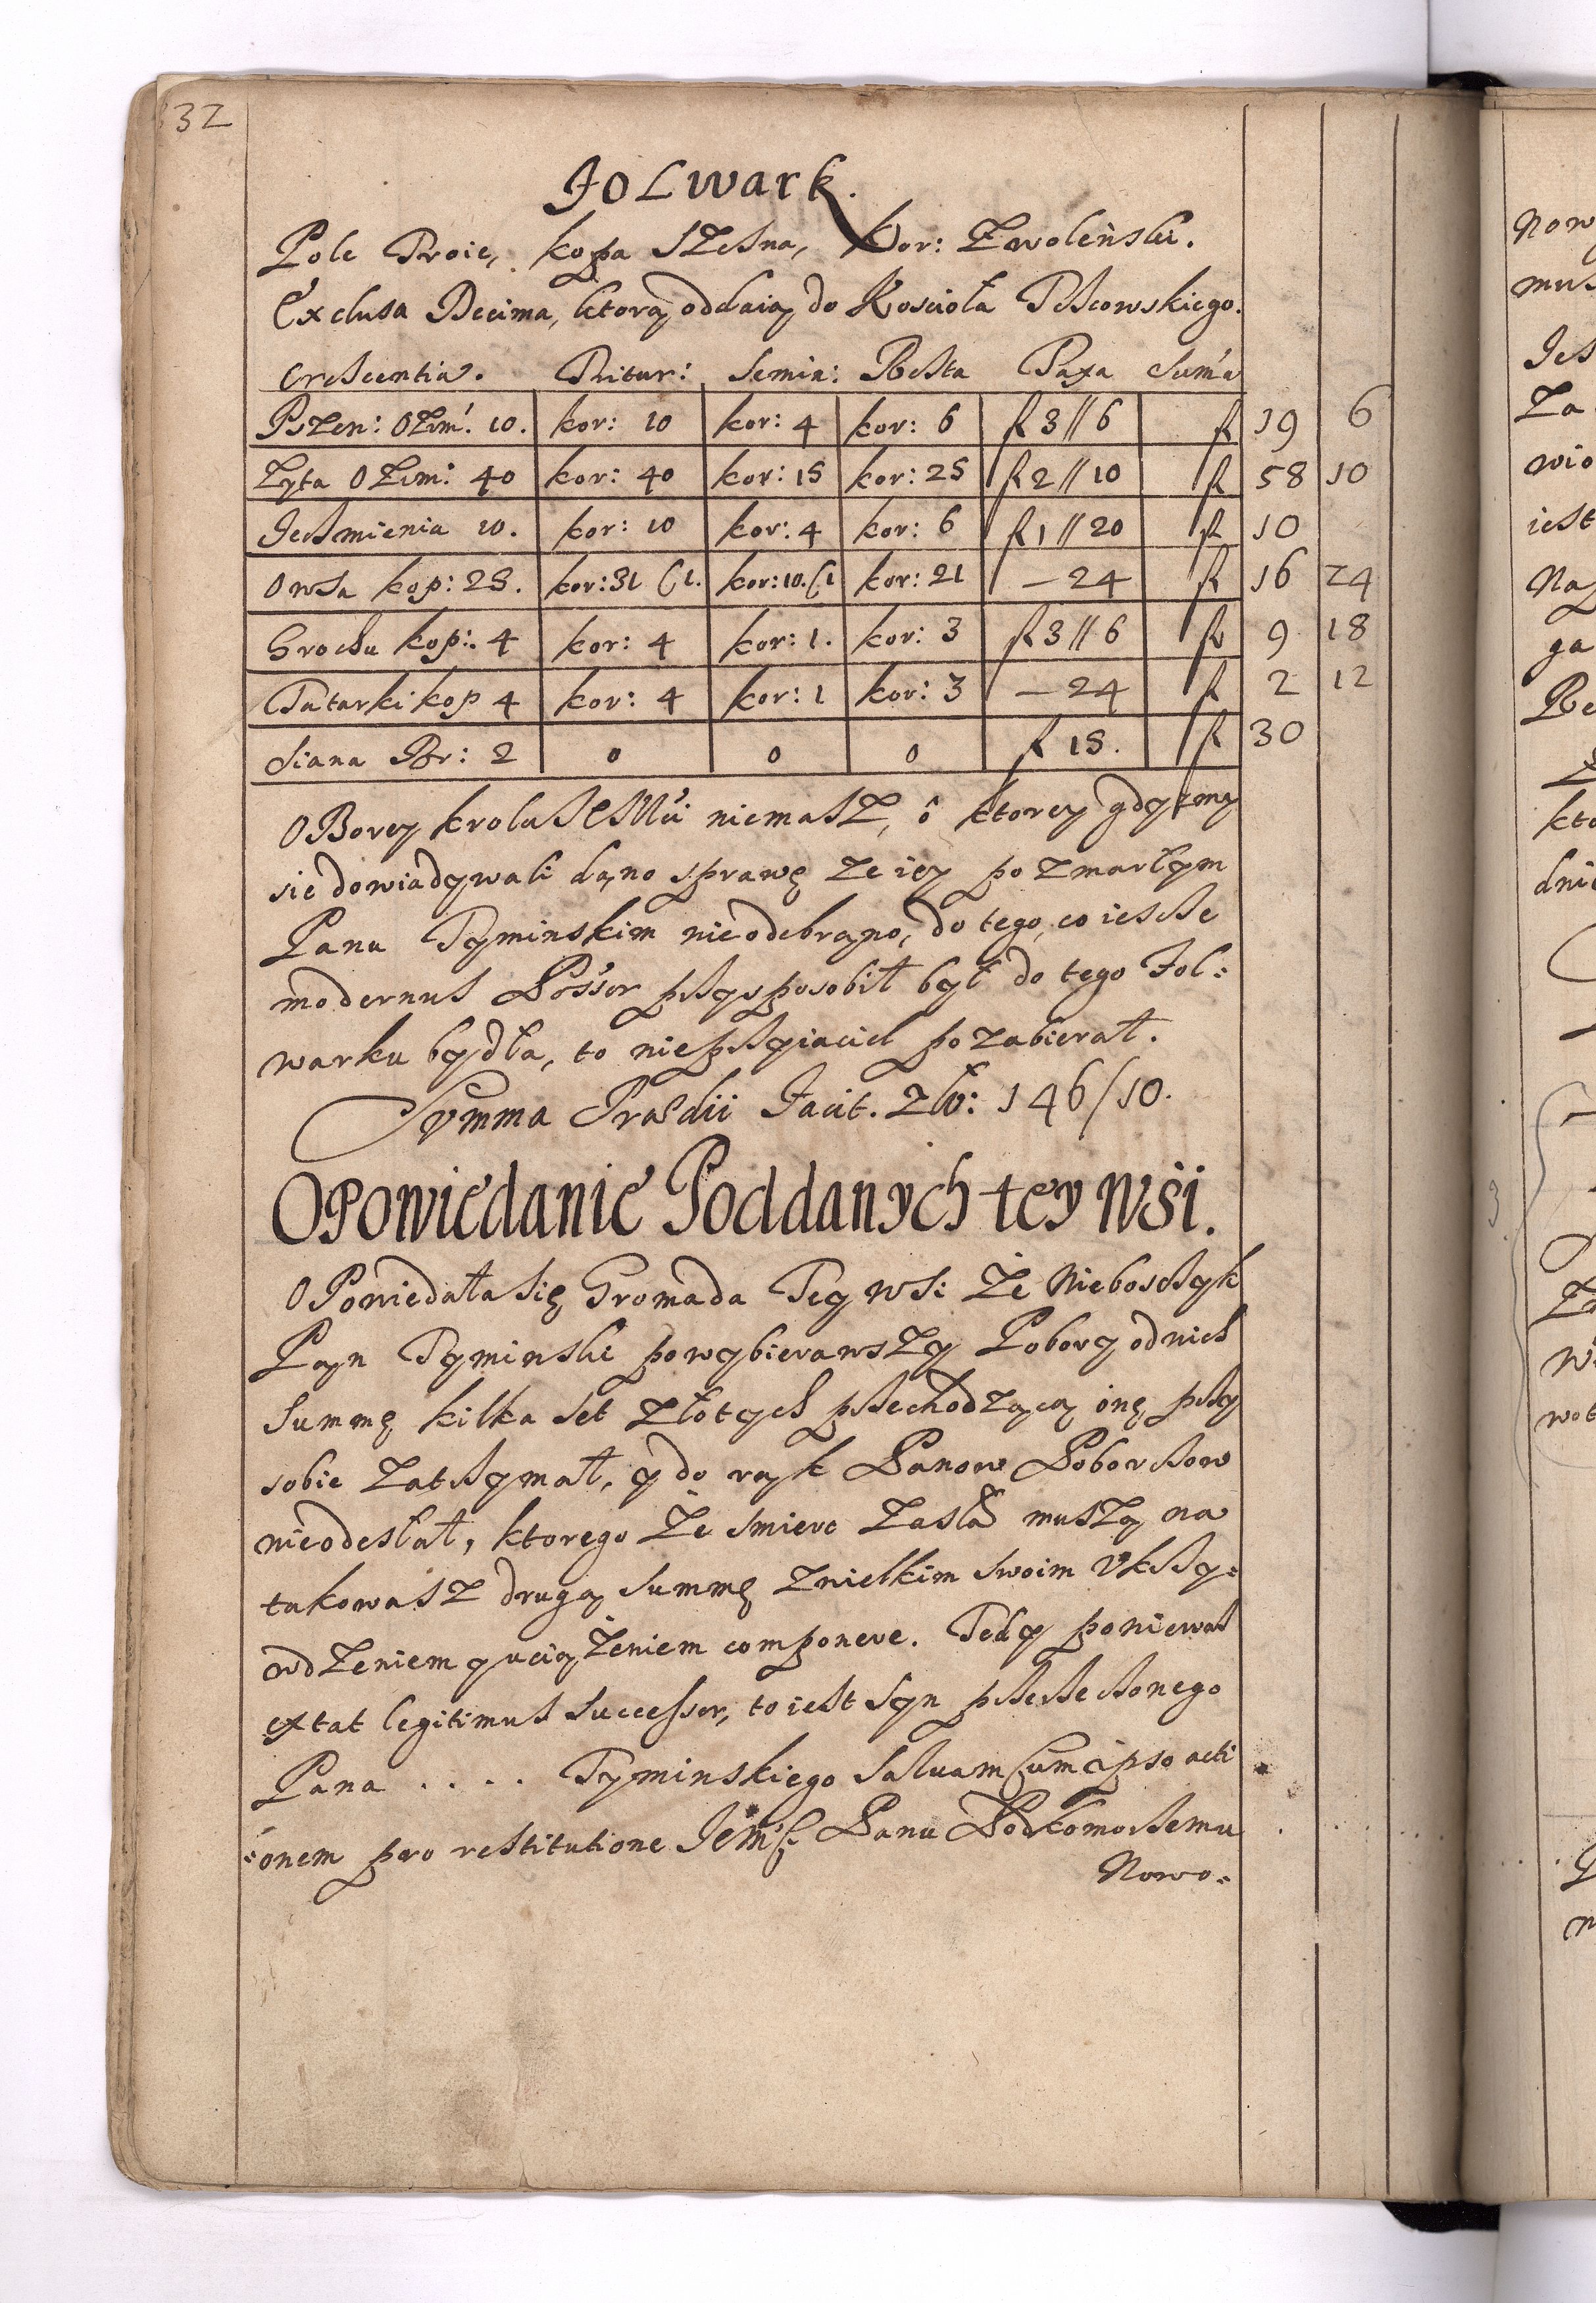 332
Folwark.
Pole Troie, kopa Szesna, Kor: Zwoleński.
Exclusa Decima, ktorą oddaią do Kosciołá Pscowskiego.
Crescentia. Tritur: Semin: Resta Taxa Sum̃a
Pszen: Ozim: 10. kor: 10 kor: 4 kor: 6 fl 3//6 fl 19 6
Zyta Ozim: 40 kor: 40 kor: 15 kor: 25 fl 2//10 fl 58 10
Jęczmienia 10. kor: 10 kor: 4 kor: 6 fl 1//20 fl 10
Owsa kop: 25. kor: 31 kor: 10. kor: 21 — 24 fl 16 24
Grochu kop: 4 kor: 4 kor: 1. kor: 3 fl 3//6 fl 9 18
Tatarki kop 4 kor: 4 kor: 1 kor: 3 — 24 fl 2 12
Siana Br: 2 0 0 0 fl 15. fl 30
Obory niemasz, o ktorey gdysmy
sie dowiadywali dąno sprawę ze iey po zmarłym
Panu Tyminskim nieodebrąno, do tego, co ieszcze
modernus Possor przysposobił był do tego Fol:
warku bydła, to nieprzyiaciel pozabierał.
Summa Praedii Facit. Zło: 146/10.
Opowiedanie Poddanych tey Wsi.
Opowiedała się Gromada Tey Wsi Że Nieboszczyk
Pąn Tyminski powybierawszy Pobory odnich
Summę kilka set złotych przechodzącą onę przy
sobie zatrzymał, y do rąk Panow Poborcow
nieodesłał, ktorego Że smierc zasła muszą na
takowasz drugą summę zwielkim swoim Vkrzy:
wdzeniem y uciążeniem componere. Tedy poniewasz
extat legitimus Successor, to iest syn przerzeczonego
Pana . . . . Tyminskiego Saluam cum ipso acti
:onem pro restitutione Panu Podkomorzemu
Nowo: